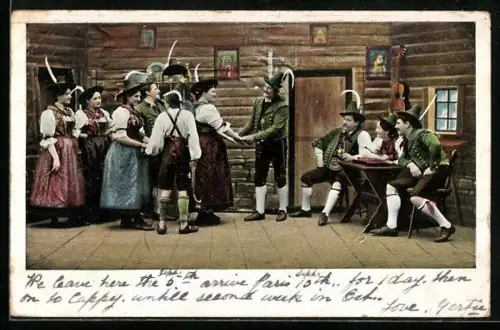 Sept. Sept.
We leave here the 5th arrive Paris 15th, for 1 day. then
on to Cuppy. untill second week in Oct.
Love. Gertie